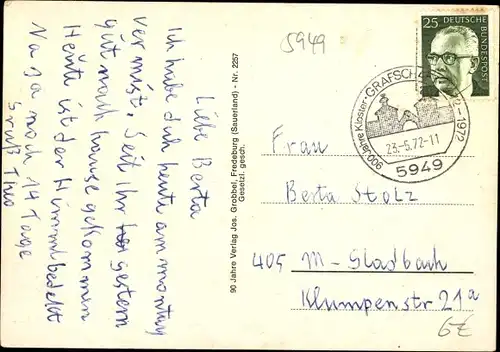 Liebe Berta
Ich habe duh heute am montag
ver mist. Seit Ihr gestern
gut nach hause gekommen
Heute ist der Himml bedekt
Na Ja noch 14 Tage
Gruß Theo
90 Jahre Verlag Jos. Grobbel, Fredeburg (Sauerland) - Nr. 2257
Gesetzl. gesch.
5949
25 DEUTSCHE
BUNDESPOST
900 Jahre Kloster · GRAFSCHAFT
-1972
23.-5.72-11
5949
Frau
Berta Stolz
405 M-Gladbach
Klumpenstr 21a
6€